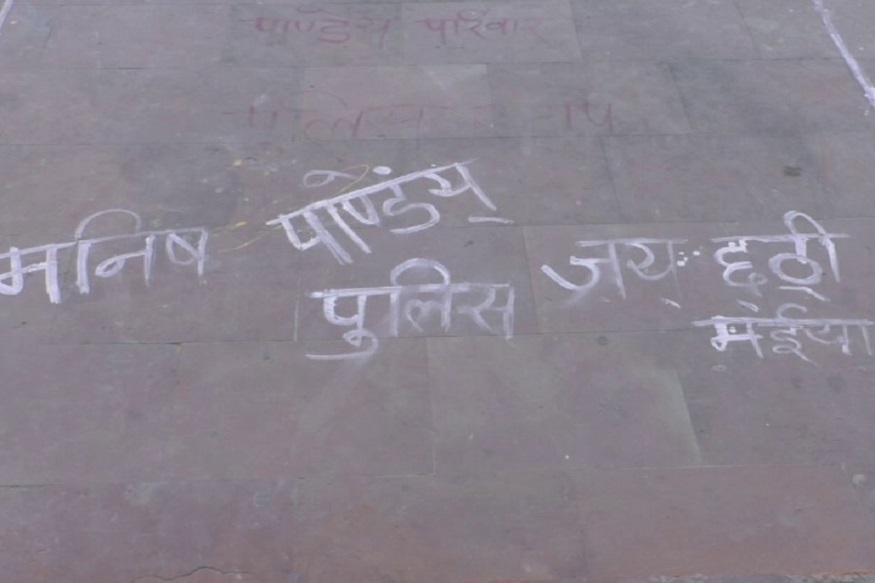 पाण्डेय परिवार
मनिष पाण्डेय जय छठी
पुलिस मईया